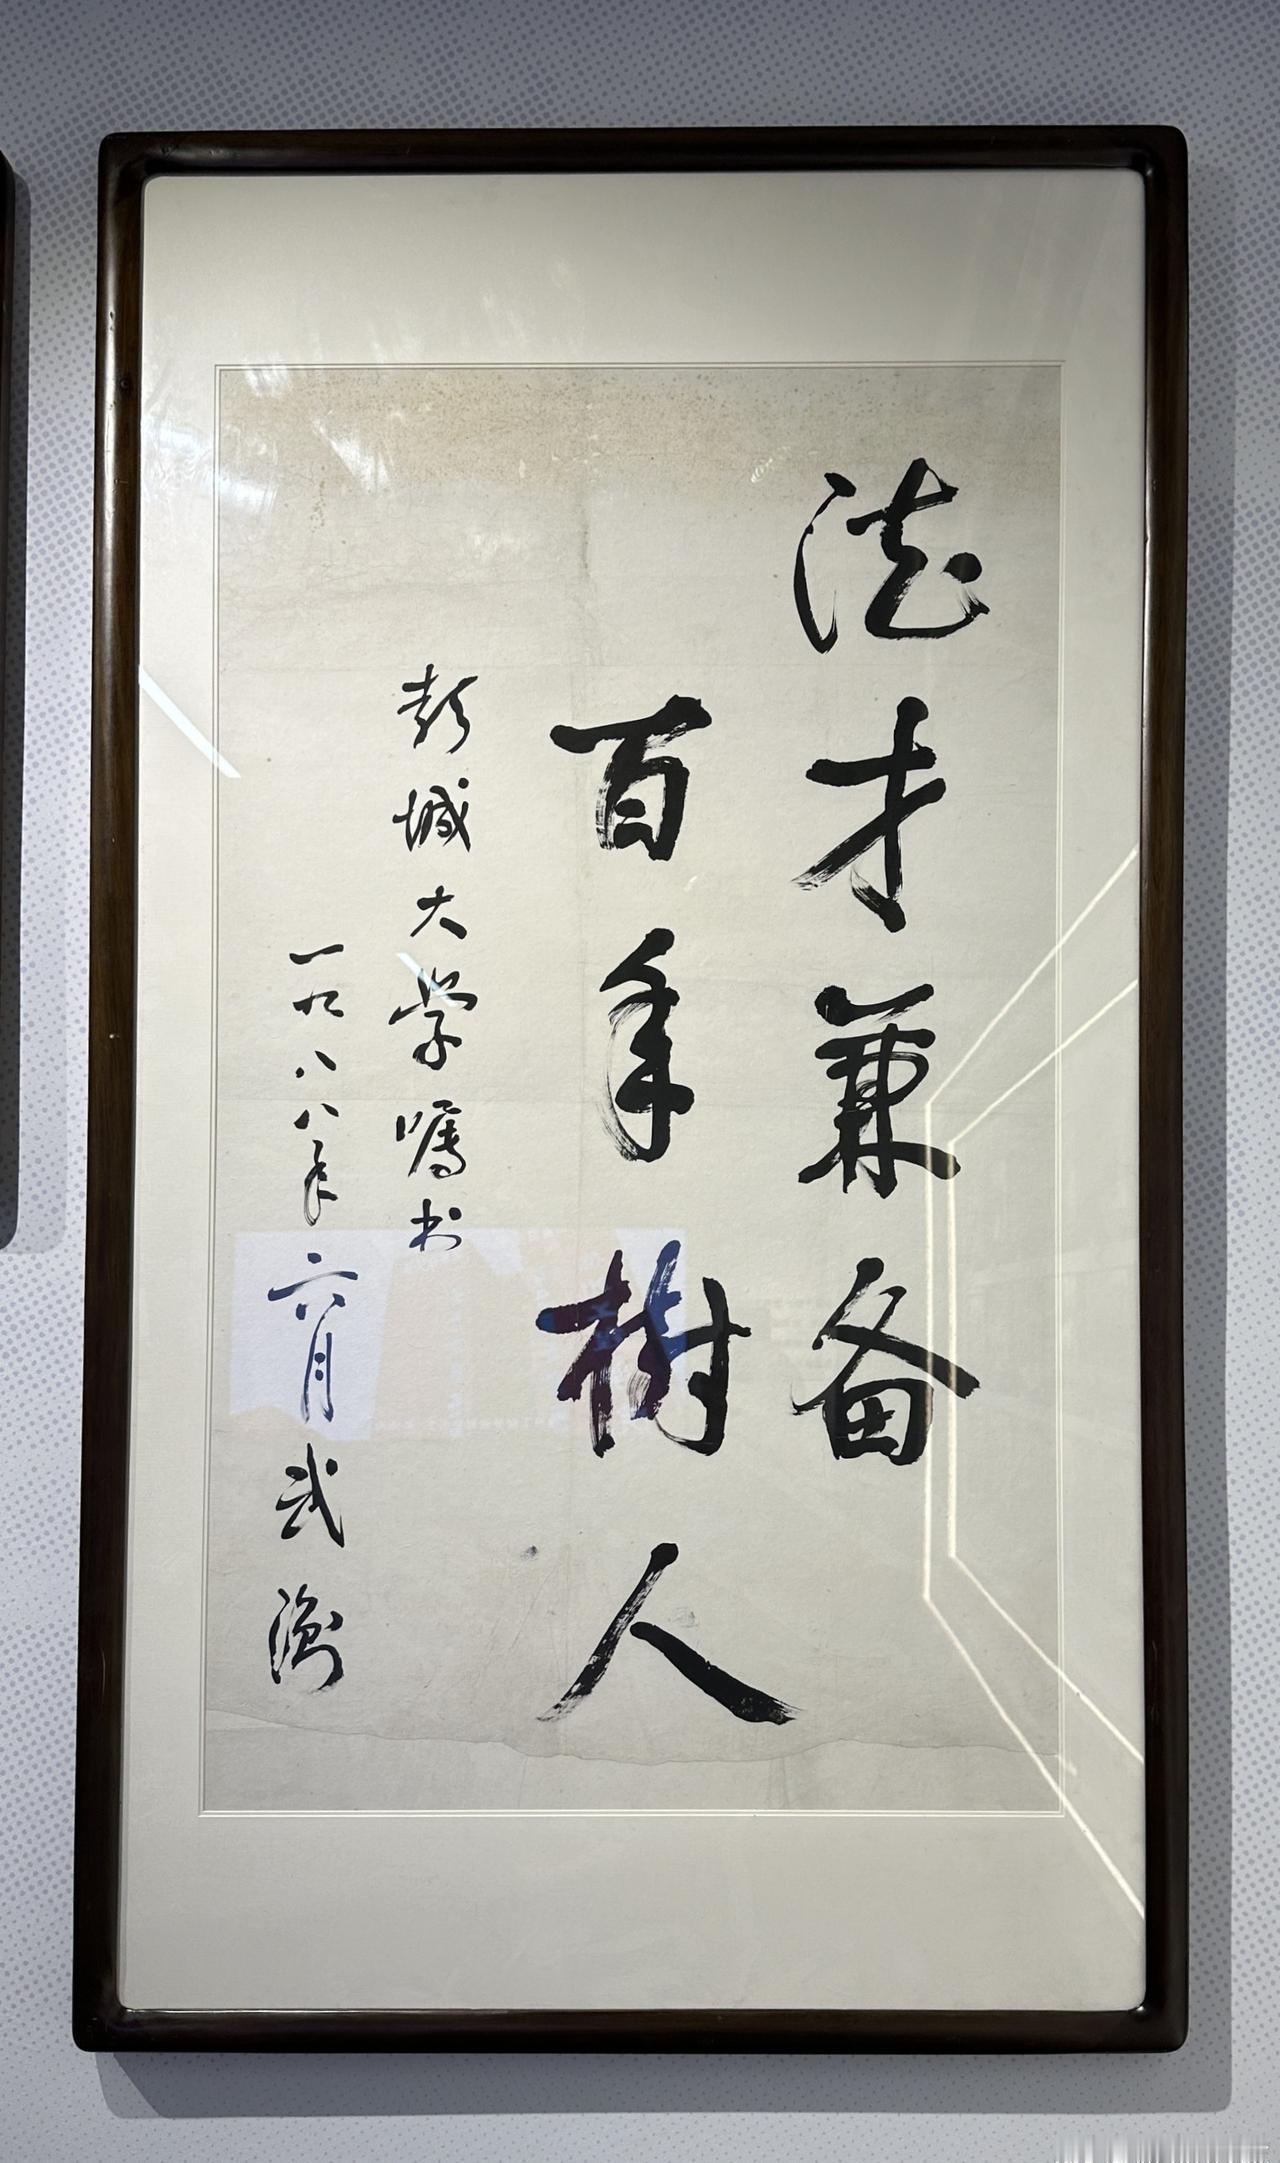 德才兼备
百年树人
彭城大学嘱书
一九八八年六月武衡